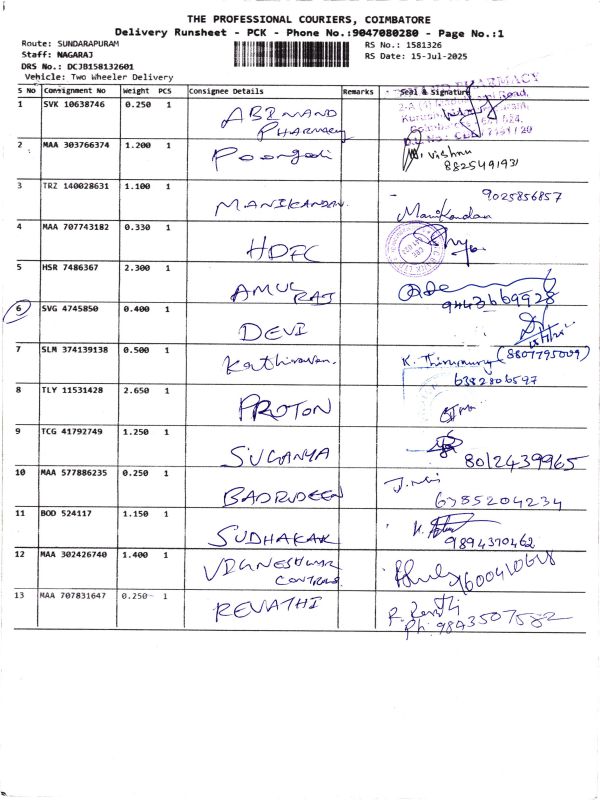 THE PROFESSIONAL COURIERS, COIMBATORE
Delivery Runsheet - PCK - Phone No.:9047080280 - Page No.:1
Route: SUNDARAPURAM
RS No.: 1581326
Staff: NAGARAJ
RS Date: 15-Jul-2025
DRS No.: DCJB158132601
Vehicle: Two Wheeler Delivery
S No Consignment No Weight PCS Consignee Details Remarks Seal & Signature
PHARMACY
1 SVK 10638746 0.250 1 ABINAND
PHARMACY
2 MAA 303766374 1.200 1 Poongodi
vishnu
8825491931
3 TRZ 140028631 1.100 1 MANIKANDAN. 9025856857
Manikandan
4 MAA 707743182 0.330 1 HDFC
5 HSR 7486367 2.300 1 AMUL
RAJ
9443669928
6 SVG 4745850 0.400 1 DEVI
7 SLM 374139138 0.500 1 Kathiravan. K. Thirumurug (8807795009)
6382806597
8 TLY 11531428 2.650 1 PROTON
9 TCG 41792749 1.250 1 SUGANYA 8012439965
10 MAA 577886235 0.250 1 BADRUDEEN
6385204234
11 BOD 524117 1.150 1 SUDHAKAR 9894370462
12 MAA 302426740 1.400 1 VIGNESHWAR
CONTROLS
9600410648
13 MAA 707831647 0.250 1 REVATHI R. Revathi
Ph: 9843507582